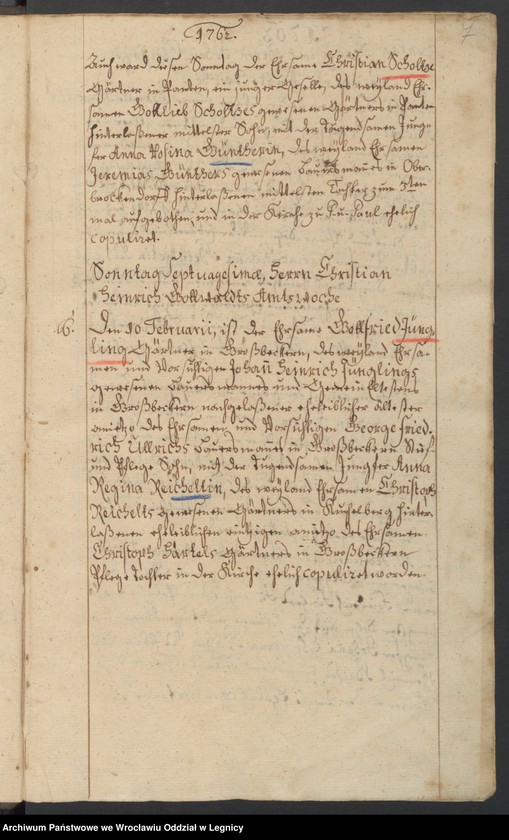 1762.
7
Auch ward diesen Sonntag der Ehrsame Christian Scholtze
Gärtner in Panten, ein junger Geselle, des weyland Ehr-
samen Gottlieb Scholtzes gewesenen Gärtners in Panten
hinterlaßener mittelster Sohn, mit der Tugendsamen Jung-
fer Anna Rosina Güntherin, des weyland Ehrsamen
Jeremias Günthers gewesenen Bauersmannes in Ober-
brockendorff hinterlaßenen mittelsten Tochter zum 3ten
mal aufgebothen, und in der Kirche zu P. u. Paul ehelich
copuliret.
Sonntag Septuagesimæ, Herrn Christian
Heinrich Gottwaldts Amtswoche
16.
Den 10 Februarii, ist der Ehrsame Gottfried Jüng-
ling Gärtner in Großbeckern, des weyland Ehrsa-
men und Vorsichtigen Johan Heinrich Jünglings
gewesenen Bauersmannes und Gemein Eltestens
in Großbeckern nachgelaßener eheleiblicher ältester
anietzo des Ehrsamen und Vorsichtigen George Fried-
rich Ullrichs Bauersmannes in Großbeckern Stief-
und Pflege Sohn, mit der Tugendsamen Jungfer Anna
Regina Reicheltin, des weyland Ehrsamen Christoph
Reichelts gewesenen Gärtners in hinter-
laßenen eheleiblichen einzigen anietzo des Ehrsamen
Christoph Bartels Gärtners in Großbeckern
Pflege Tochter in der Kirche ehelich copuliret worden.
Archiwum Państwowe we Wrocławiu Oddział w Legnicy